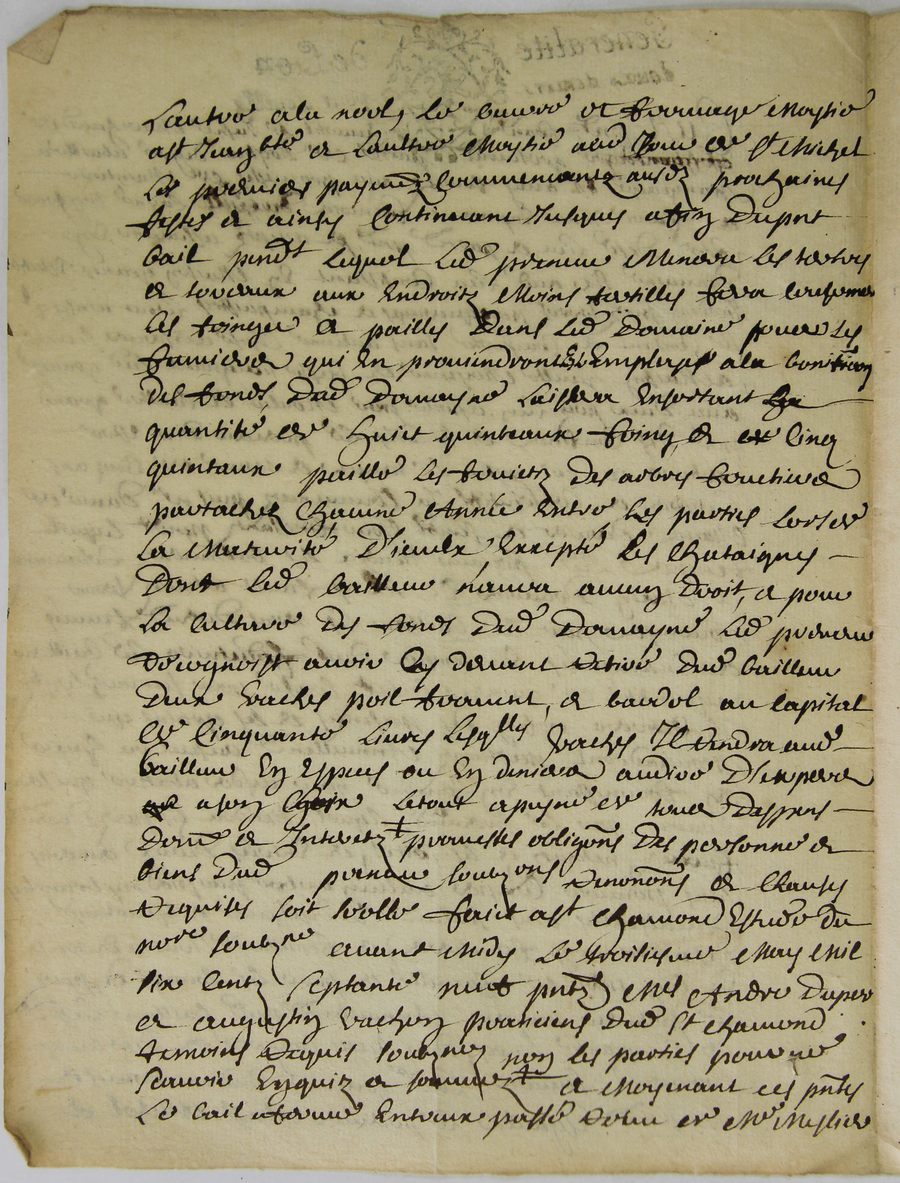 Lautre a la noel, le beurre et fromage moytié
a St Jean bte et laultre moytié aud jour de St Michel
Le premier payment commencant ausd prochaines
festes et ainsy continuant jusques a fin du pnt
bail pendt lequel led preneur menera les terres
et aux endroitz moins fertilles fera
les foings et pailles dans led domaine pour les
fumiers qui en proviendront estre employés a la
des fonds dud domayne laissera en sortant la
quantité de huict quintaux foing et cinq
quintaux paille les fruictz des arbres fructiers
partaches chacune année entre les parties lors de
la maturité d'iceulx excepté les chataignes
dont led bailleur n'aura aucun droit, et pour
la culture des fonds dud domayne led preneur
recognoist avoir cy devant retiré dud bailleur
deux vaches poil froment, et bardel au capital
de cinquante livres lesqlles vaches Il rendra aud
bailleur en especes ou en deniers au dire d'expers
a son choix le tout a payne de tous despens
dom et Interetz promesses obligons des personne et
biens dud preneur soubzons renonons et clauses
requises soit voulle faict a St Chamond estude du
nore soubzne avant midy le troisiesme may mil
six centz septante nuef pntz Mes André Duper
et Augustin Vachon praticiens dud St Chamond
temoins requis soubznez non les parties pour ne
scavoir enquiz et sommez et moyenant ces pntes
le bail a ferme entreux passé receu de Me Meslier
Generalite de Lion